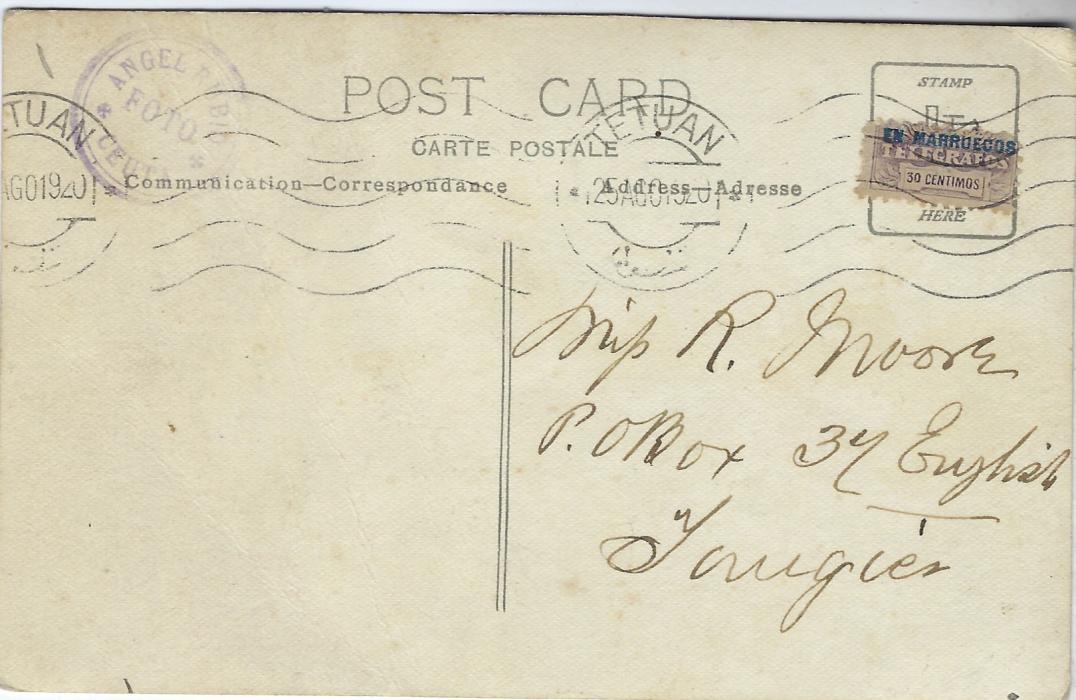 ANGEL RUBIO
FOTO
CEUTA
POST CARD
CARTE POSTALE
Communication—Correspondance
Address—Adresse
STAMP
HERE
EN MARRUECOS
TELEGRAFOS
30 CENTIMOS
TETUAN
AGO1920
TETUAN
25AGO1920
Miss R. Moore
P.O Box 37 English
Tangier